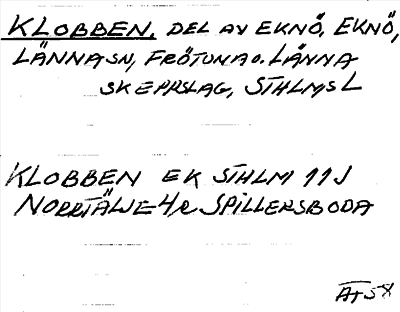 KLOBBEN, DEL AV EKNÖ, EKNÖ,
LÄNNA SN, FRÖTUNA O. LÄNNA
SKEPPSLAG, STHLMS L
KLOBBEN EK STHLM 11J
NORRTÄLJE 4/2 SPILLERSBODA